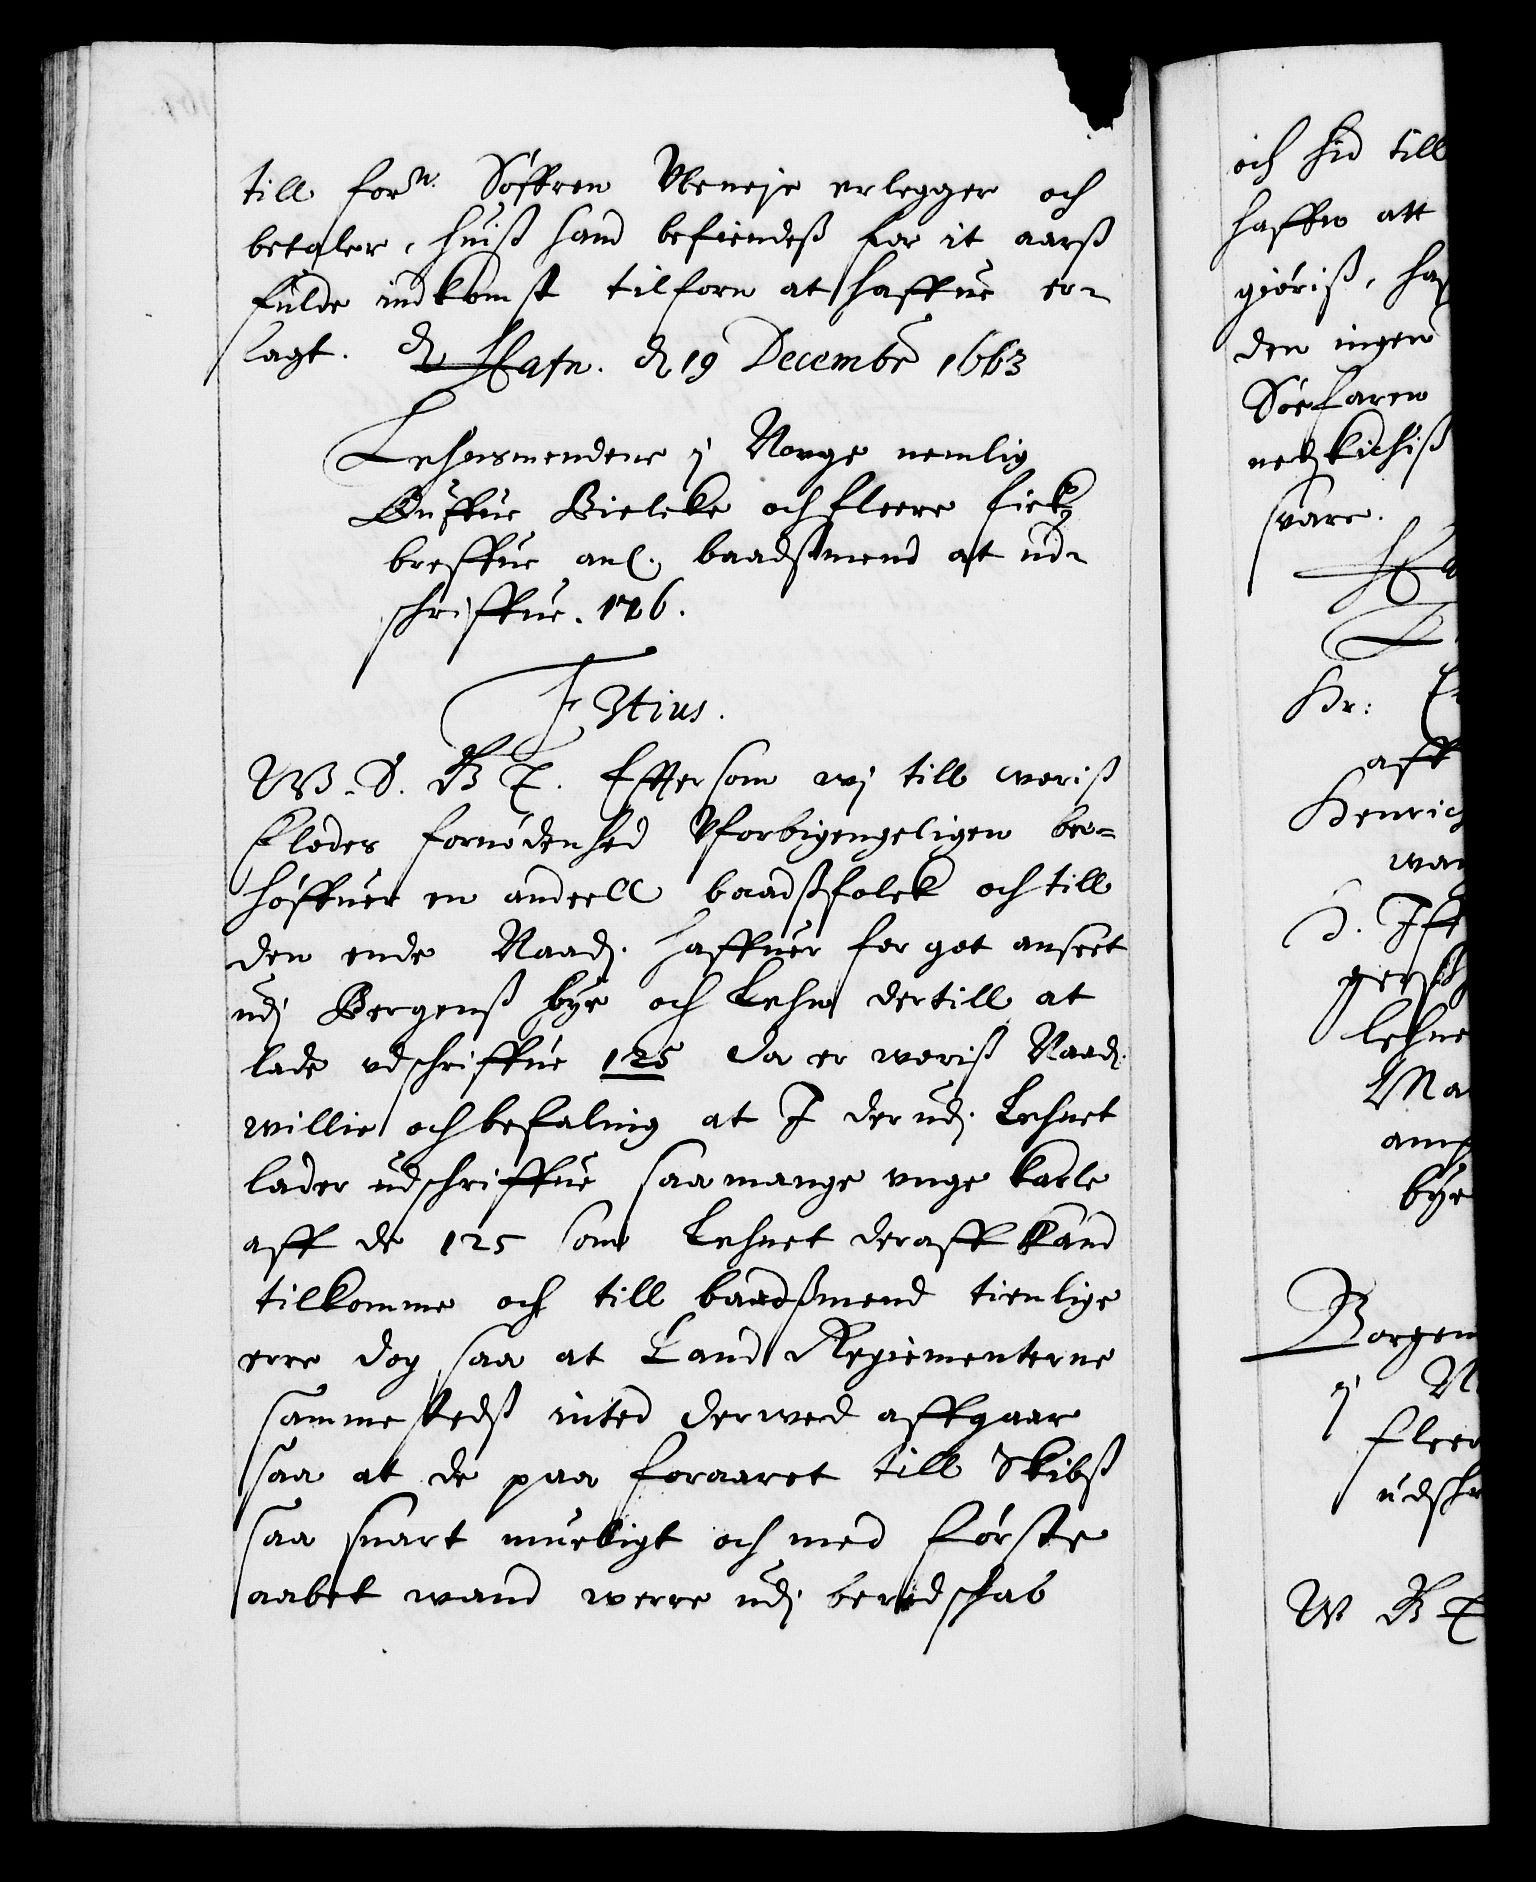 till forn. Søffren Vrneje erlegger och
betaler, huiß hand befiendeß for it aarß
fulde indkomst tilforn at haffue er-
lagt. Hafn. d 19 Decembr 1663
Lehnsmendene j Norge nemlig
Ouffue Bielcke och fleere fick
breffue anl. baadßmend at ud-
schriffue. 126.
F 3tius.
W. S. B T. Efftersom wj till woriß
Flodes fornødenhed Vforbigengeligen be-
høffuer en andeell baadßfolck och till
den ende Naad. haffuer for got anseet
udj Bergenß bye och Lehn dertill at
lade udschriffue 125 da er woriß Naad.
willie och befaling at I der udj Lehnet
lader udschriffue saa mange unge karle
aff de 125 som Lehnet deraff kand
tilkomme och till baadßmend tienlige
erre dog saa at Land Regiementerne
sammestedß inted derwed affgaar
saa at de paa foraaret till Skibß
saa snart mueligt och med første
aabet wand werre udj beredschab
och hid till
haffue att
giøriß, haf
den ingen
Søefaren
svare.
Hr:
aff
Henrich
lehne
bye
Borgem
j N
fleer
udschr
W B T